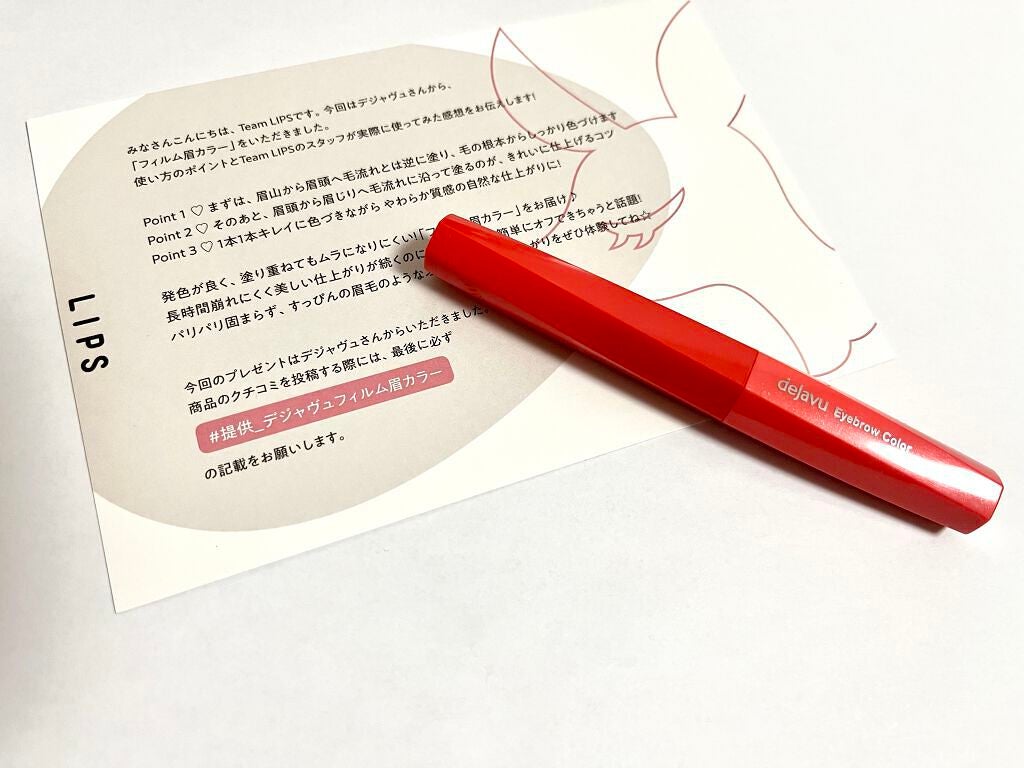 みなさんこんにちは、Team LIPSです。今回はデジャヴュさんから、
「フィルム眉カラー」をいただきました。
使い方のポイントとTeam LIPSのスタッフが実際に使ってみた感想をお伝えします!
Point 1 ♡ まずは、眉山から眉頭へ毛流れとは逆に塗り、毛の根本からしっかり色づけます
Point 2 ♡ そのあと、眉頭から眉じりへ毛流れに沿って塗るのが、きれいに仕上げるコツ
Point 3 ♡ 1本1本キレイに色づきながら やわらか質感の自然な仕上がりに!
発色が良く、塗り重ねてもムラになりにくい!「フ 眉カラー」をお届け♪
長時間崩れにくく美しい仕上がりが続くのに 簡単にオフできちゃうと話題!
パリパリ固まらず、すっぴんの眉毛のような がりをぜひ体験してね☆
今回のプレゼントはデジャヴュさんからいただきました。
商品のクチコミを投稿する際には、最後に必ず
#提供_デジャヴュフィルム眉カラー
の記載をお願いします。
LIPS
dejavu Eyebrow Color